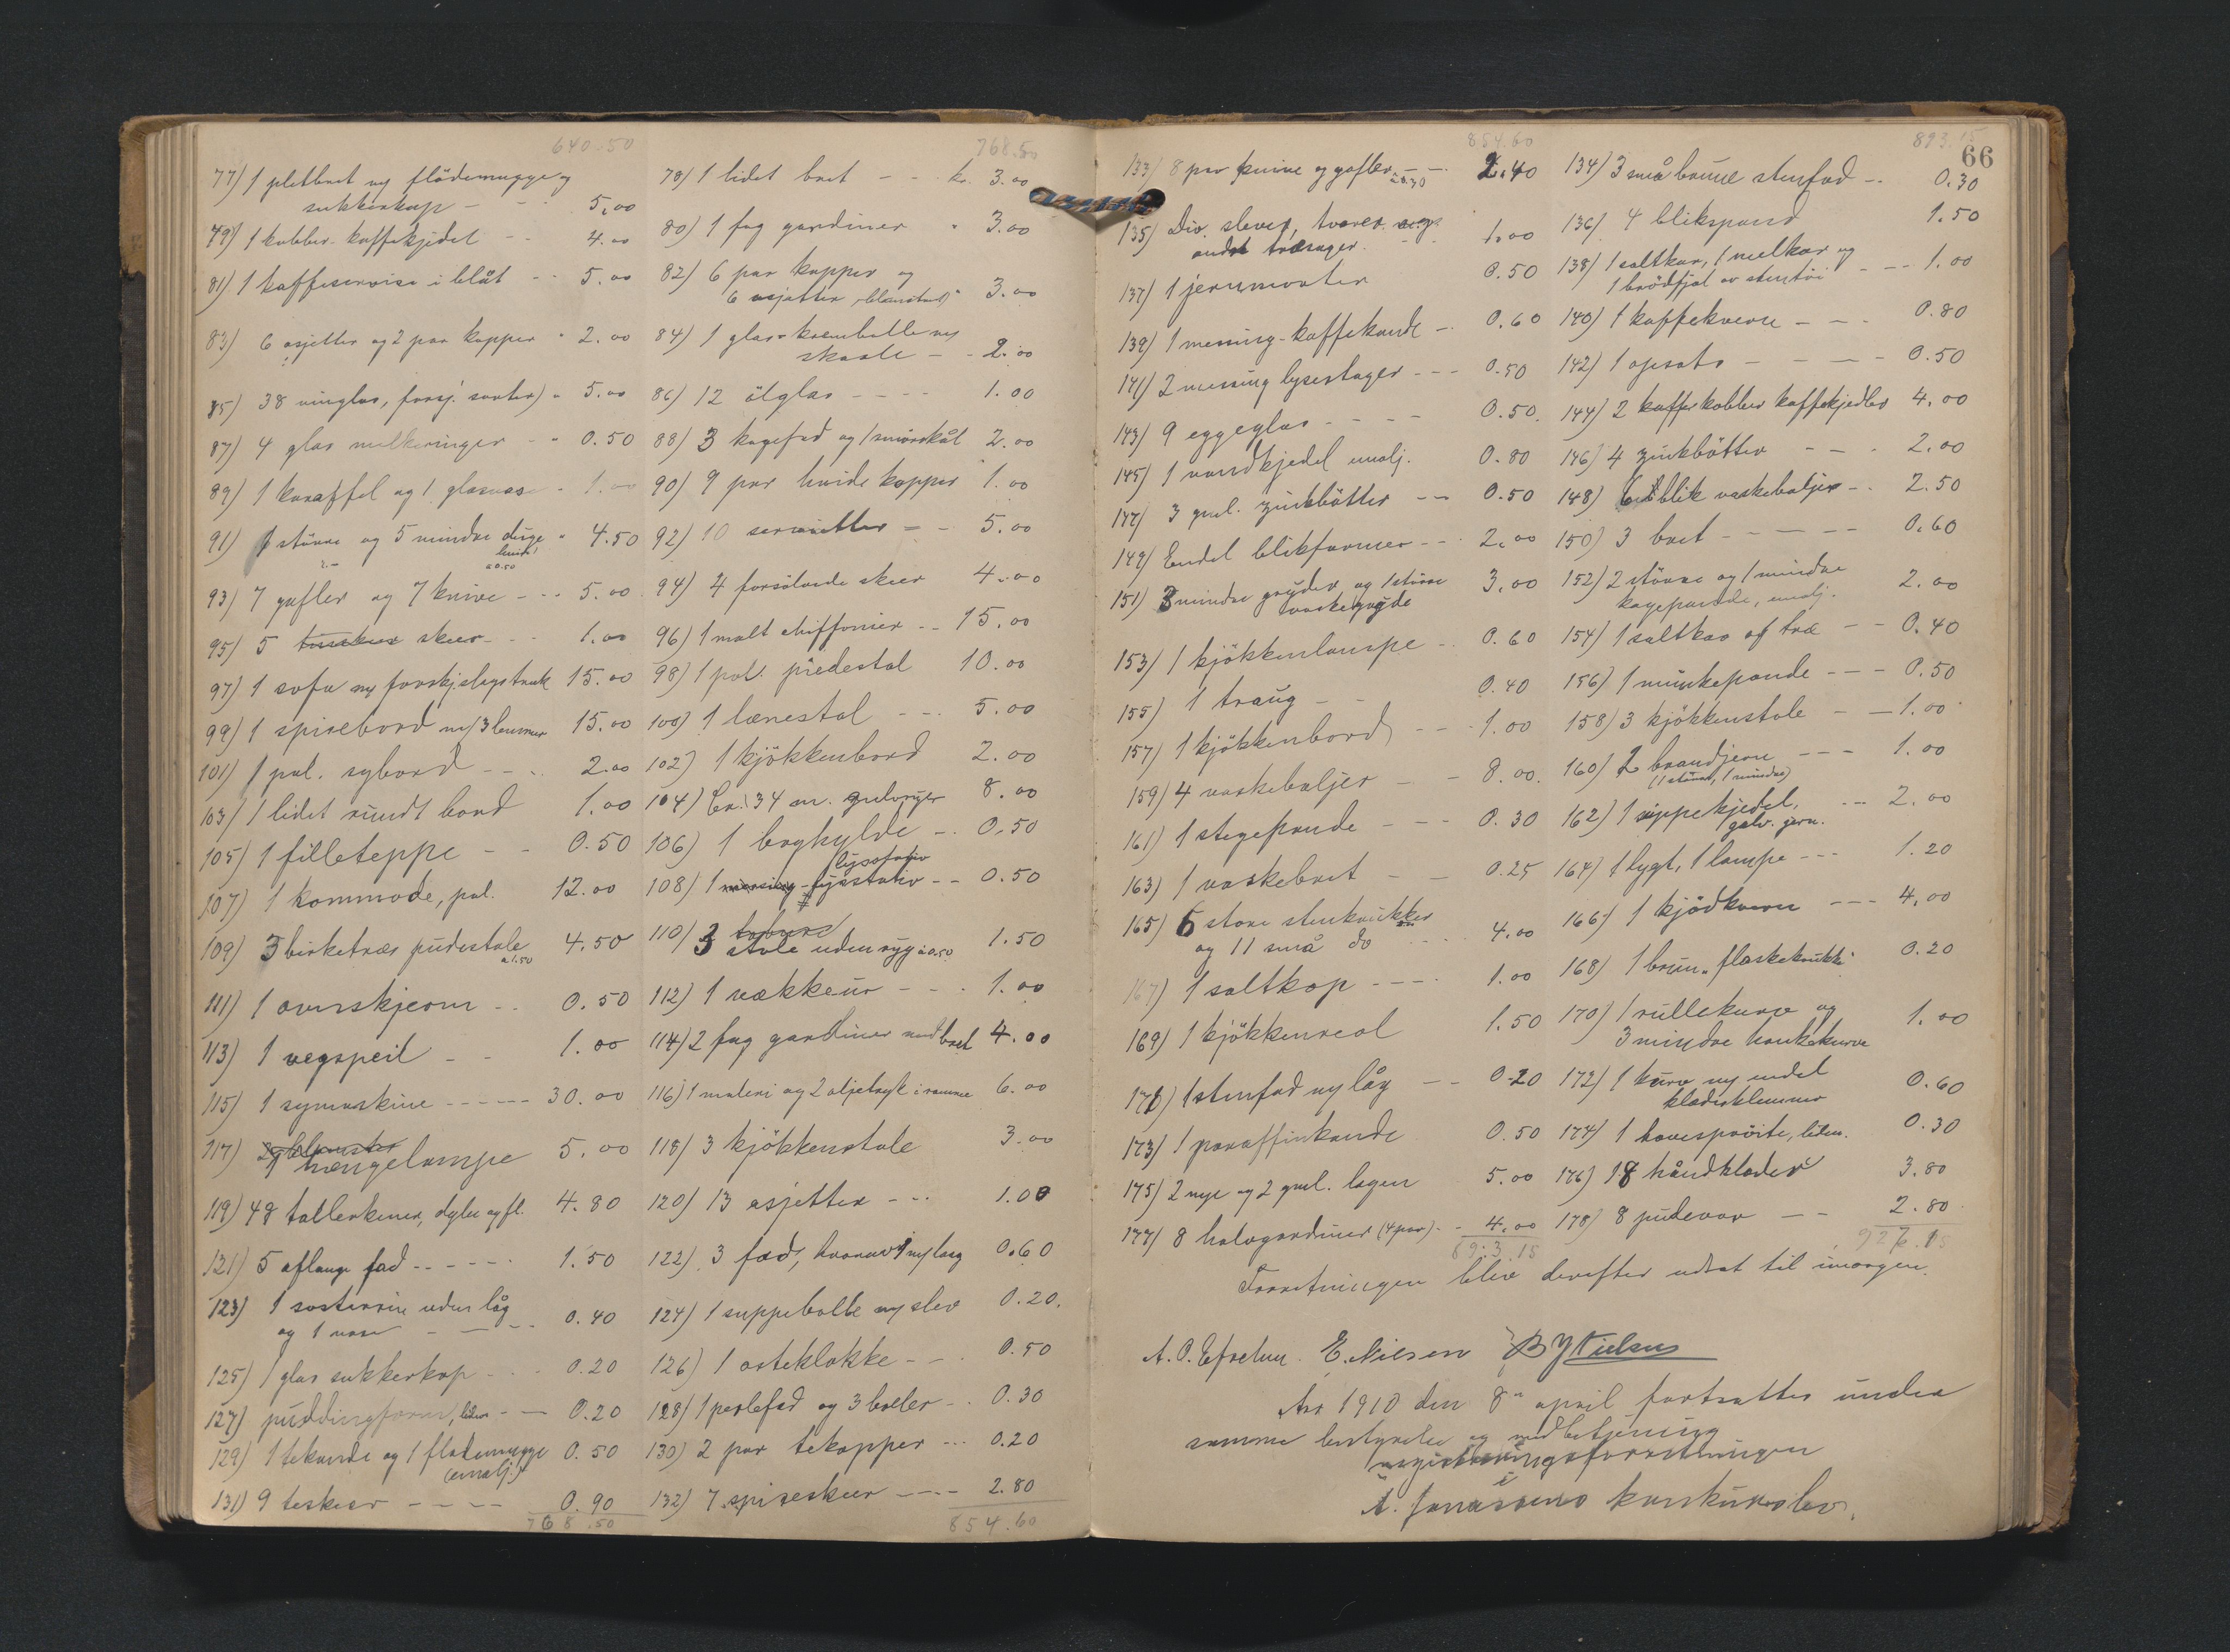 640.50
77) 1 pletbret m/ flödemugge og
sukkerkop - - 5.00
79) 1 kobber kaffekjedel - - 4.00
81) 1 kaffeservise i blåt - - 5.00
83) 6 asjetter og 2 par kopper " 2.00
85) 38 vinglas, forsj. sorter) " 5.00
87) 4 glas melkeringer - " 0.50
89) 1 karaffel og 1 glasvase - 1.00
91) 1 större og 5 mindre duge " 4.50
2.- a 0.50
93) 7 gafler og 7 knive - - - 5.00
95) 5 skeer - - - 1.00
97) 1 sofa m/ forskjelligt 15.00
99) 1 spisebord m/ 3 lemmer 15.00
101) 1 pol. sybord - - - 2.00
103) 1 lidet rundt bord 1.00
105) 1 filleteppe - - 0.50
107) 1 kommode, pol. 12.00
109) 3 birketræs pudestole 4.50
a 1.50
111) 1 ovnskjerm - - 0.50
113) 1 vegspeil - - 1.00
115) 1 symaskine - - - - - 30.00
117) 1 hængelampe 5.00
119) 48 tallerkener, dybe og fl. 4.80
121) 5 aflange fad - - - - - 1.50
123) 1 sosterrin uden låg
og 1 vase - - - - 0.40
125) 1 glas sukkerkop - - - 0.20
127) puddingform, liden - - 0.20
129) 1 tekande og 1 flødemugge 0.50
(emalj.)
131) 9 teskeer - - - - 0.90
768.50
768.50
78) 1 lidet bret - - kr. 3.00
80) 1 fag gardiner " 3.00
82) 6 par kopper og
6 asjetter "blaustad" 3.00
84) 1 glas-krembolle m/
skaale - - 2.00
86) 12 ölglas - - - - 1.00
88) 3 kagefad og 1 smörskål 2.00
90) 9 par hvide kopper 1.00
92) 10 servietter - - 5.00
94) 4 forsölvede skeer 4.00
96) 1 malt chiffonier - - 15.00
98) 1 pol. piedestal 10.00
100) 1 lænestol - - - 5.00
102) 1 kjökkenbord 2.00
104) Ca. 34 m. gulvryer 8.00
106) 1 boghylde - - 0.50
lysstativ
108) 1 - - 0.50
110) 3
stole uden ryg a 0.50 1.50
112) 1 vækkeur - - - 1.00
114) 2 fag gardiner med bret 4.00
116) 1 maleri og 2 oljetryk i ramme 6.00
118) 3 kjökkenstole 3.00
120) 13 asjetter - - - 1.00
122) 3 fad, hvorav 1 m/ laag 0.60
124) 1 suppebolle m/ slev 0.20.
126) 1 osteklokke - - - 0.50
128) 1 perlefad og 3 boller - - 0.30
130) 2 par tekopper - - - 0.20
132) 7 spiseskeer - - - - 2.80
854.60
854.60
133) 8 par knive og gafler a 0.30 - - 2.40
135) Div. slever, tvarer og
andre træsager. - - 1.00
137) 1 jernmorter 0.50
139) 1 messing-kaffekande - - 0.60
141) 2 messing lysestager - - - 0.50
143) 9 eggeglas - - - - 0.50.
145) 1 vandkjedel emalj. 0.80
147) 3 gml. zinkbötter - - 0.50
149) Endel blikformer - - - 2.00
151) 3 mindre gryder og 1 större
vaskegryde 3.00
153) 1 kjökkenlampe - - 0.60
155) 1 traug - - 0.40
157) 1 kjökkenbord - - - 1.00
159) 4 vaskebaljer - - 8.00.
161) 1 stegepande - - - 0.30
163) 1 vaskebret - - 0.25
165) 6 store stenkrukker
og 11 små do - - - 4.00
167) 1 saltkop - - - - 1.00
169) 1 kjökkenreol 1.50
171) 1 stenfad m/ låg - - 0.20
173) 1 paraffinkande 0.50
175) 2 nye og 2 gml. lagen 5.00
177) 8 halvgardiner (4 par) - - 4.00
893.15
893.15
66
134) 3 små brune stenfad - - 0.30
136) 4 blikspand 1.50
138) 1 saltkar, 1 melkar og
1 brödfjöl av stentöi - - - 1.00
140) 1 kaffekvern - - - 0.80
142) 1 opsats - - - - 0.50
144) 2 kobber kaffekjedler 4.00
146) 4 zinkbötter - - - 2.00
148) 6 blik vaskebaljer - - 2.50
150) 3 bret - - - - 0.60
152) 2 större og 1 mindre
kagepande, emalj. 2.00
154) 1 saltkar af træ - - 0.40
156) 1 munkepande - - - 0.50
158) 3 kjökkenstole - - 1.00
160) 2 brandjern - - - 1.00
(1 större, 1 mindre)
162) 1 suppekjedel, - - - 2.00
galv. jern.
164) 1 lygt, 1 lampe - - - 1.20
166) 1 kjödkvern - - - 4.00
168) 1 brun "flaskekrukke" 0.20
170) 1 rullekurv og
3 mindre hankekurve 1.00
172) 1 kurv m/ endel
klædesklemmer 0.60
174) 1 havespröite, liden. 0.30
176) 18 håndklæder 3.80
178) 8 pudevar - - 2.80
927.15
Forretningen blev derefter udsat til imorgen.
E. Nilsen B J Nielsen
Aar 1910 den 8de april fortsattes under
samme bestyrelse og med betjening
registreringsforretningen
i
A. Jonassens konkursbo.